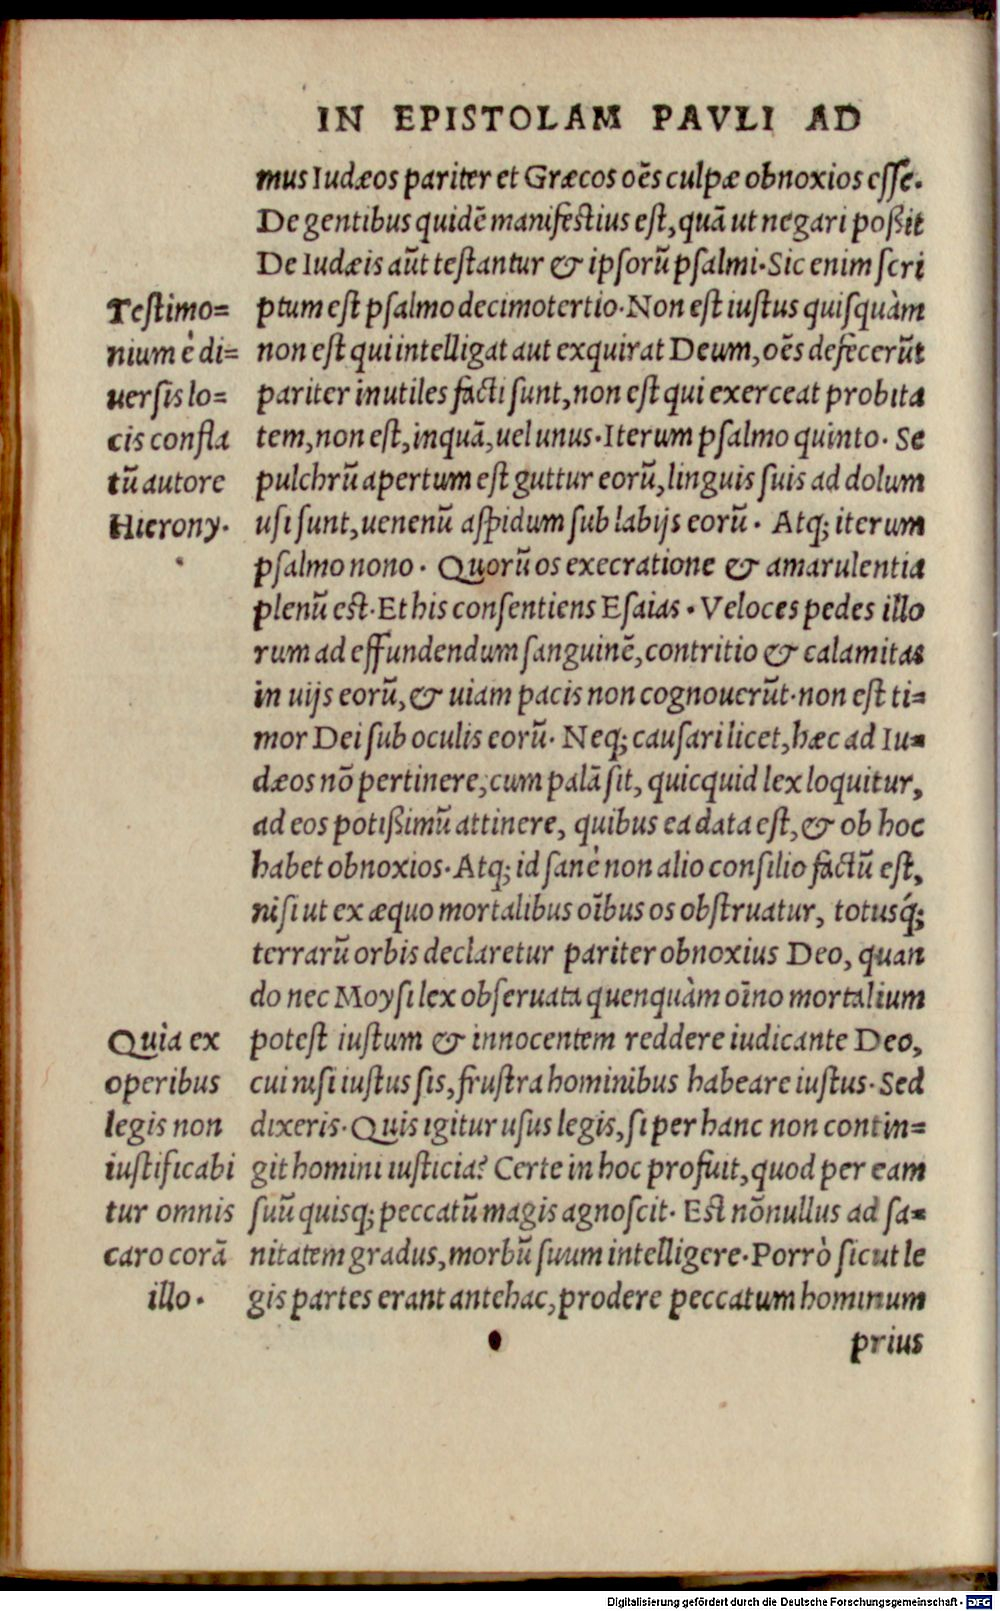 IN EPISTOLAM PAVLI AD
mus Iudæos pariter et Græcos oẽs culpæ obnoxios esse.
De gentibus quidẽ manifestius est, quã ut negari poßit
De Iudæis aũt testantur & ipsorũ psalmi. Sic enim scri
ptum est psalmo decimotertio. Non est iustus quisquàm
non est qui intelligat aut exquirat Deum, oẽs defecerũt
pariter inutiles facti sunt, non est qui exerceat probita
tem, non est, inquã, uel unus. Iterum psalmo quinto. Se
pulchrũ apertum est guttur eorũ, linguis suis ad dolum
usi sunt, uenenũ aspidum sub labijs eorũ. Atq; iterum
psalmo nono. Quorũ os execratione & amarulentia
plenũ est. Et his consentiens Esaias. Veloces pedes illo
rum ad effundendum sanguinẽ, contritio & calamitas
in uijs eorũ, & uiam pacis non cognouerũt. non est ti=
mor Dei sub oculis eorũ. Neq; causari licet, hæc ad Iu=
dæos nõ pertinere, cum palã sit, quicquid lex loquitur,
ad eos potißimũ attinere, quibus ea data est, & ob hoc
habet obnoxios. Atq; id sanè non alio consilio factũ est,
nisi ut ex æquo mortalibus oĩbus os obstruatur, totusq́;
terrarũ orbis declaretur pariter obnoxius Deo, quan
do nec Moysi lex obseruata quenquàm oĩno mortalium
potest iustum & innocentem reddere iudicante Deo,
cui nisi iustus sis, frustra hominibus habeare iustus. Sed
dixeris. Quis igitur usus legis, si per hanc non contin=
git homini iusticia? Certe in hoc profuit, quod per eam
suũ quisq; peccatũ magis agnoscit. Est nõnullus ad sa=
nitatem gradus, morbũ suum intelligere. Porrò sicut le
gis partes erant antehac, prodere peccatum hominum
prius
Testimo=
nium è di=
uersis lo=
cis confla
tũ autore
Hierony.
Quìa ex
operibus
legis non
iustificabi
tur omnis
caro corã
illo.
Digitalisierung gefördert durch die Deutsche Forschungsgemeinschaft - DFG